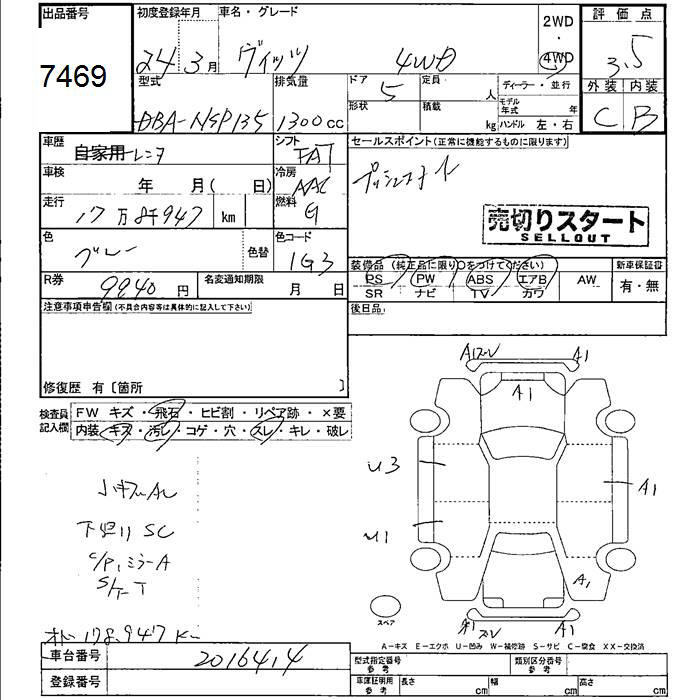 出品番号
7469
初度登録年月
24 3月
車名・グレード
ヴィッツ 4WD
2WD
4WD
評価点
3.5
外装 内装
C B
型式
DBA-NSP135
排気量
1300cc
ドア 5
定員 人
形状
積載 kg
ディーラー・並行
モデル年式 年
ハンドル 左・右
車歴
自家用 レンタ
シフト
FAT
車検
年 月( 日)
冷房
AAC
走行
17万8千947 km
燃料
G
色
グレー
色替
色コード
1G3
R券
9940円
名変通知期限
月 日
セールスポイント(正常に機能するものに限ります)
プッシュスタート
売切りスタート
SELLOUT
装備品(純正品に限り○をつけてください)
PS PW ABS エアB AW
SR ナビ TV カワ
新車保証書
有・無
後日品
注意事項申告欄(不具合内容等は具体的に記入して下さい)
修復歴 有〔箇所 〕
検査員記入欄
FW キズ・飛石・ヒビ割・リペア跡・×要
内装・キズ・汚レ・コゲ・穴・スレ・キレ・破レ
A1 A1
A1
U3
A1
U1
A1
小キズ
下廻り SC
ミラーA
オドー 178,947 K
スペア
A-キズ E-エクボ U-凹み W-補修跡 S-サビ C-腐食 XX-交換済
車台番号
2016414
登録番号
型式指定番号 参考
類別区分番号 参考
車庫証明用 参考
長さ cm
幅 cm
高さ cm